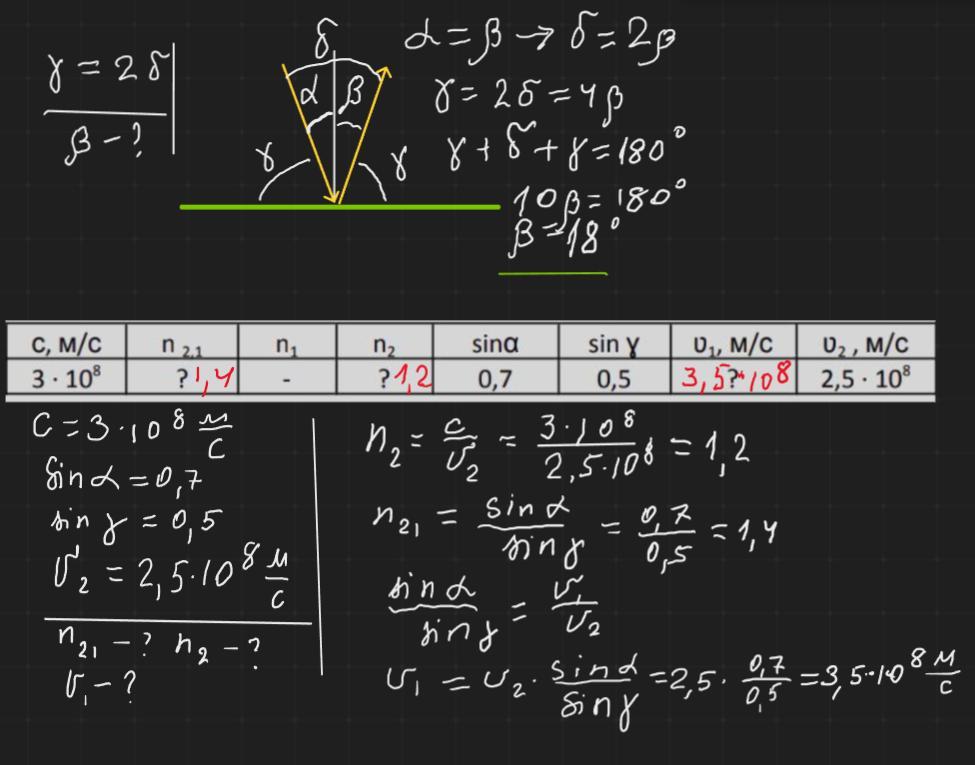 γ = 2δ
β - ?
δ
α β
γ γ
α = β → δ = 2β
γ = 2δ = 4β
γ + δ + γ = 180°
10β = 180°
β = 18°
c, м/с n 2,1 n₁ n₂ sinα sin γ υ₁, м/с υ₂ , м/с
3 · 10⁸ ? 1,4 - ? 1,2 0,7 0,5 3,5?·10⁸ 2,5 · 10⁸
c = 3·10⁸ м/с
sin α = 0,7
sin γ = 0,5
υ₂ = 2,5·10⁸ м/с
n₂₁ - ? n₂ - ?
υ₁ - ?
n₂ = c/υ₂ = 3·10⁸/2,5·10⁸ = 1,2
n₂₁ = sin α/sin γ = 0,7/0,5 = 1,4
sin α/sin γ = υ₁/υ₂
υ₁ = υ₂ · sin α/sin γ = 2,5 · 0,7/0,5 = 3,5·10⁸ м/с